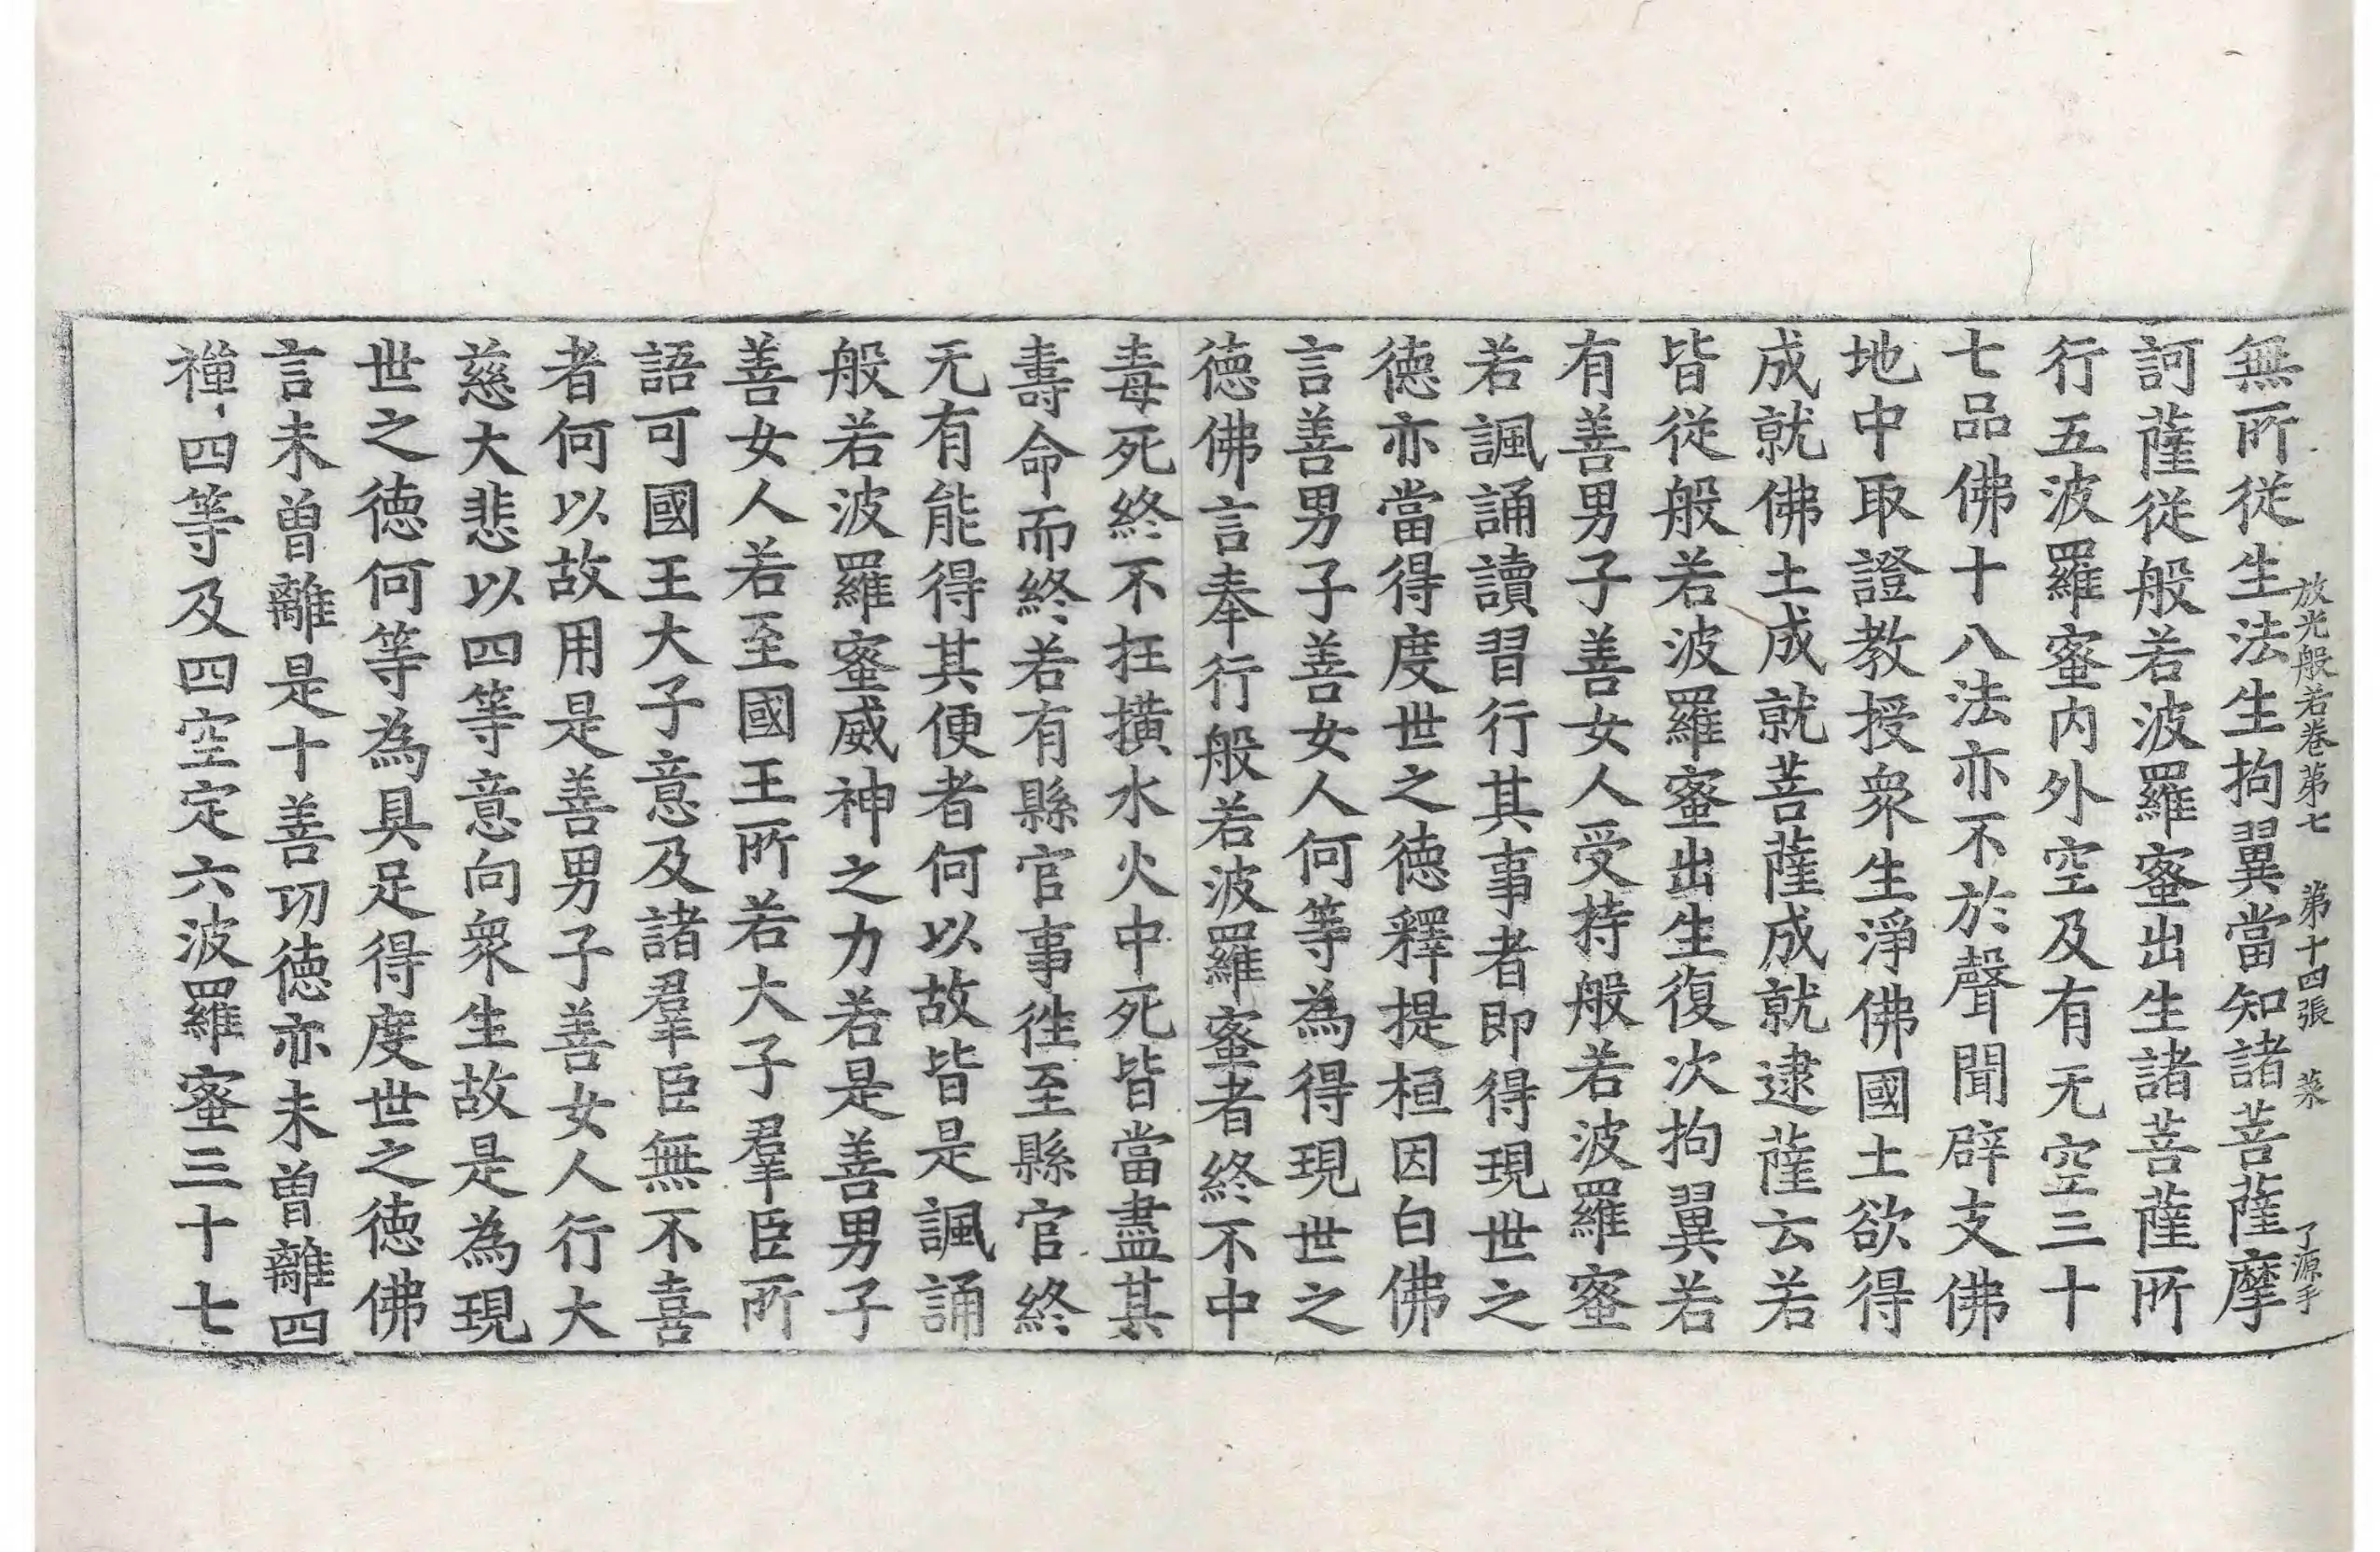 放光般若卷第七 第十四張 菜 了源手
無所従生法生拘翼當知諸菩薩摩
訶薩従般若波羅蜜出生諸菩薩所
行五波羅蜜内外空及有无空三十
七品佛十八法亦不於聲聞辟支佛
地中取證教授衆生淨佛國土欲得
成就佛土成就菩薩成就逮薩云若
皆従般若波羅蜜出生復次拘翼若
有善男子善女人受持般若波羅蜜
若諷誦讀習行其事者即得現世之
徳亦當得度世之徳釋提桓因白佛
言善男子善女人何等為得現世之
徳佛言奉行般若波羅蜜者終不中
毒死終不抂撗水火中死皆當盡其
壽命而終若有縣官事徃至縣官終
无有能得其便者何以故皆是諷誦
般若波羅蜜威神之力若是善男子
善女人若至國王所若大子羣臣所
語可國王大子意及諸羣臣無不喜
者何以故用是善男子善女人行大
慈大悲以四等意向衆生故是為現
世之徳何等為具足得度世之徳佛
言未曽離是十善功徳亦未曽離四
禪四等及四空定六波羅蜜三十七